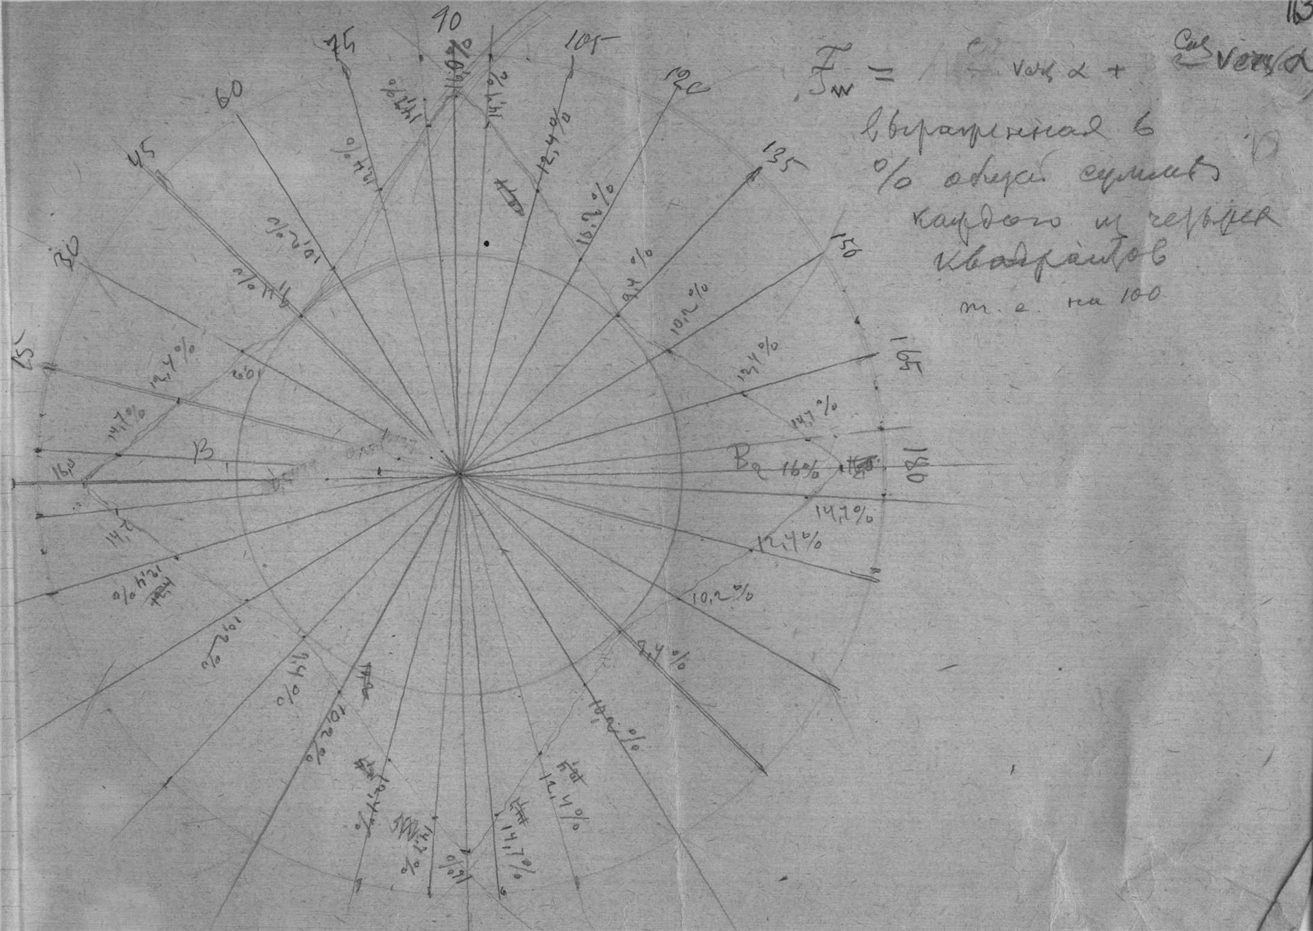 163
F_w = vers α + Cos vers α
выраженная в
% общей суммы
каждого из четырех
квадрантов
т. е. на 100
75
90
105
120
135
150
165
180
60
45
30
15
16,0%
14,7%
14,7%
12,4%
12,4%
16,2%
10,2%
9,4%
9,4%
10,2%
12,4%
12,4%
10,2
14,7%
14,7%
B₁
B₂
16%
16,0
14,7%
12,4%
14,7
12,4%
10,2%
10,2%
9,4%
9,4%
10,2%
10,2%
12,4%
12,4%
14,7%
14,7%
16%